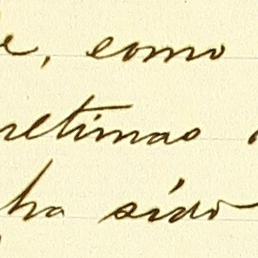 e, como
retimas
ha sido